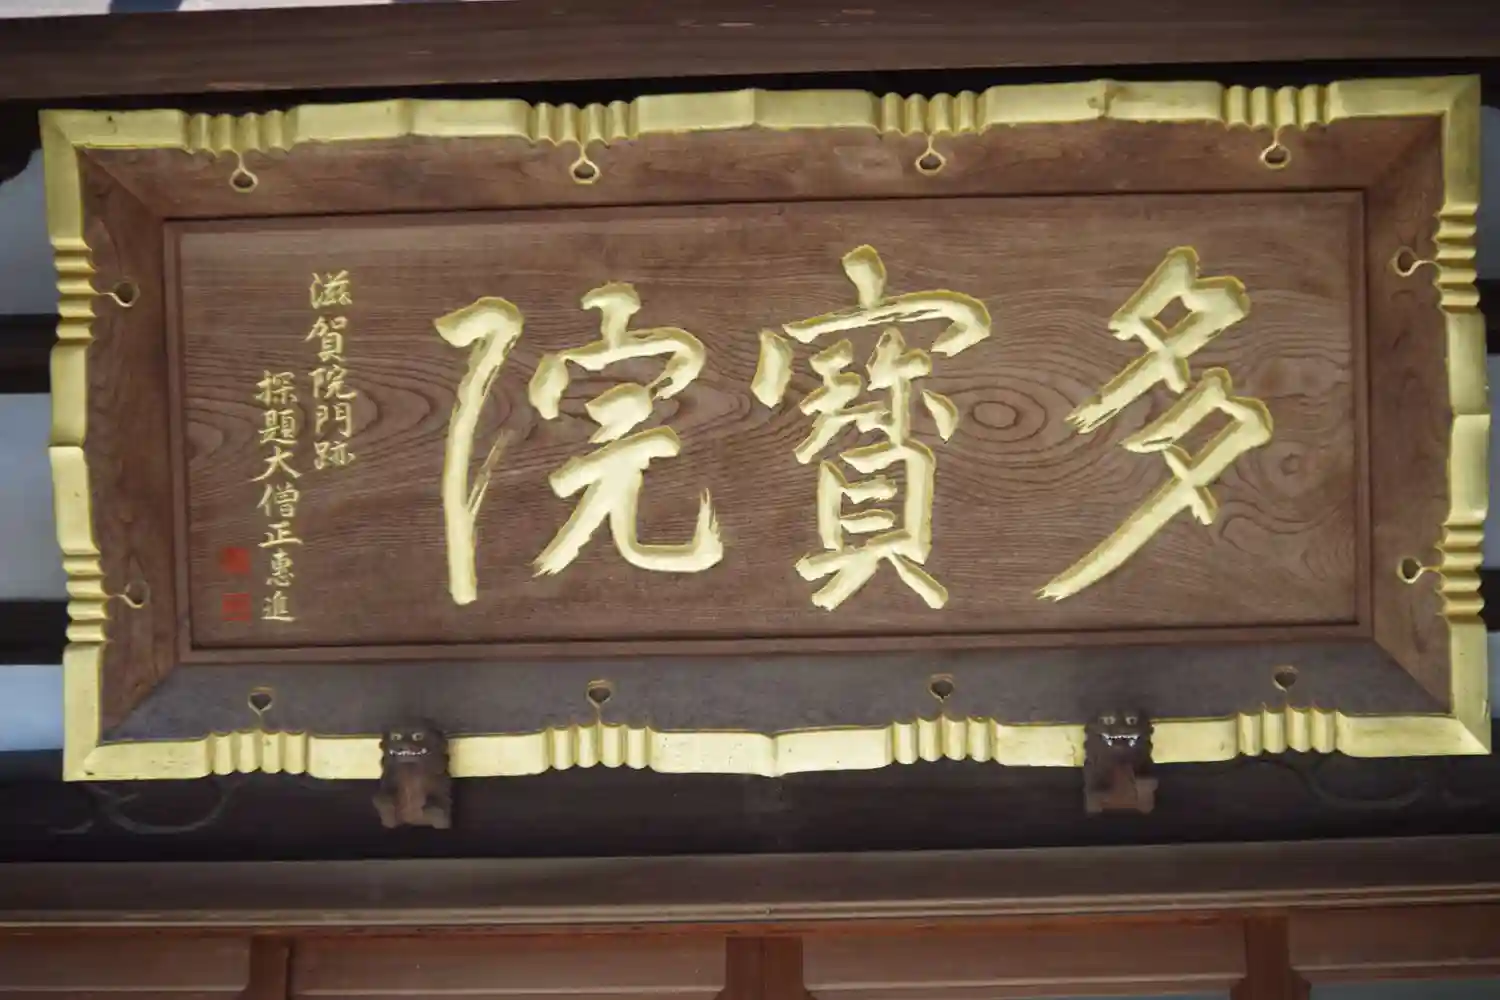 多寶院
滋賀院門跡
探題大僧正惠進